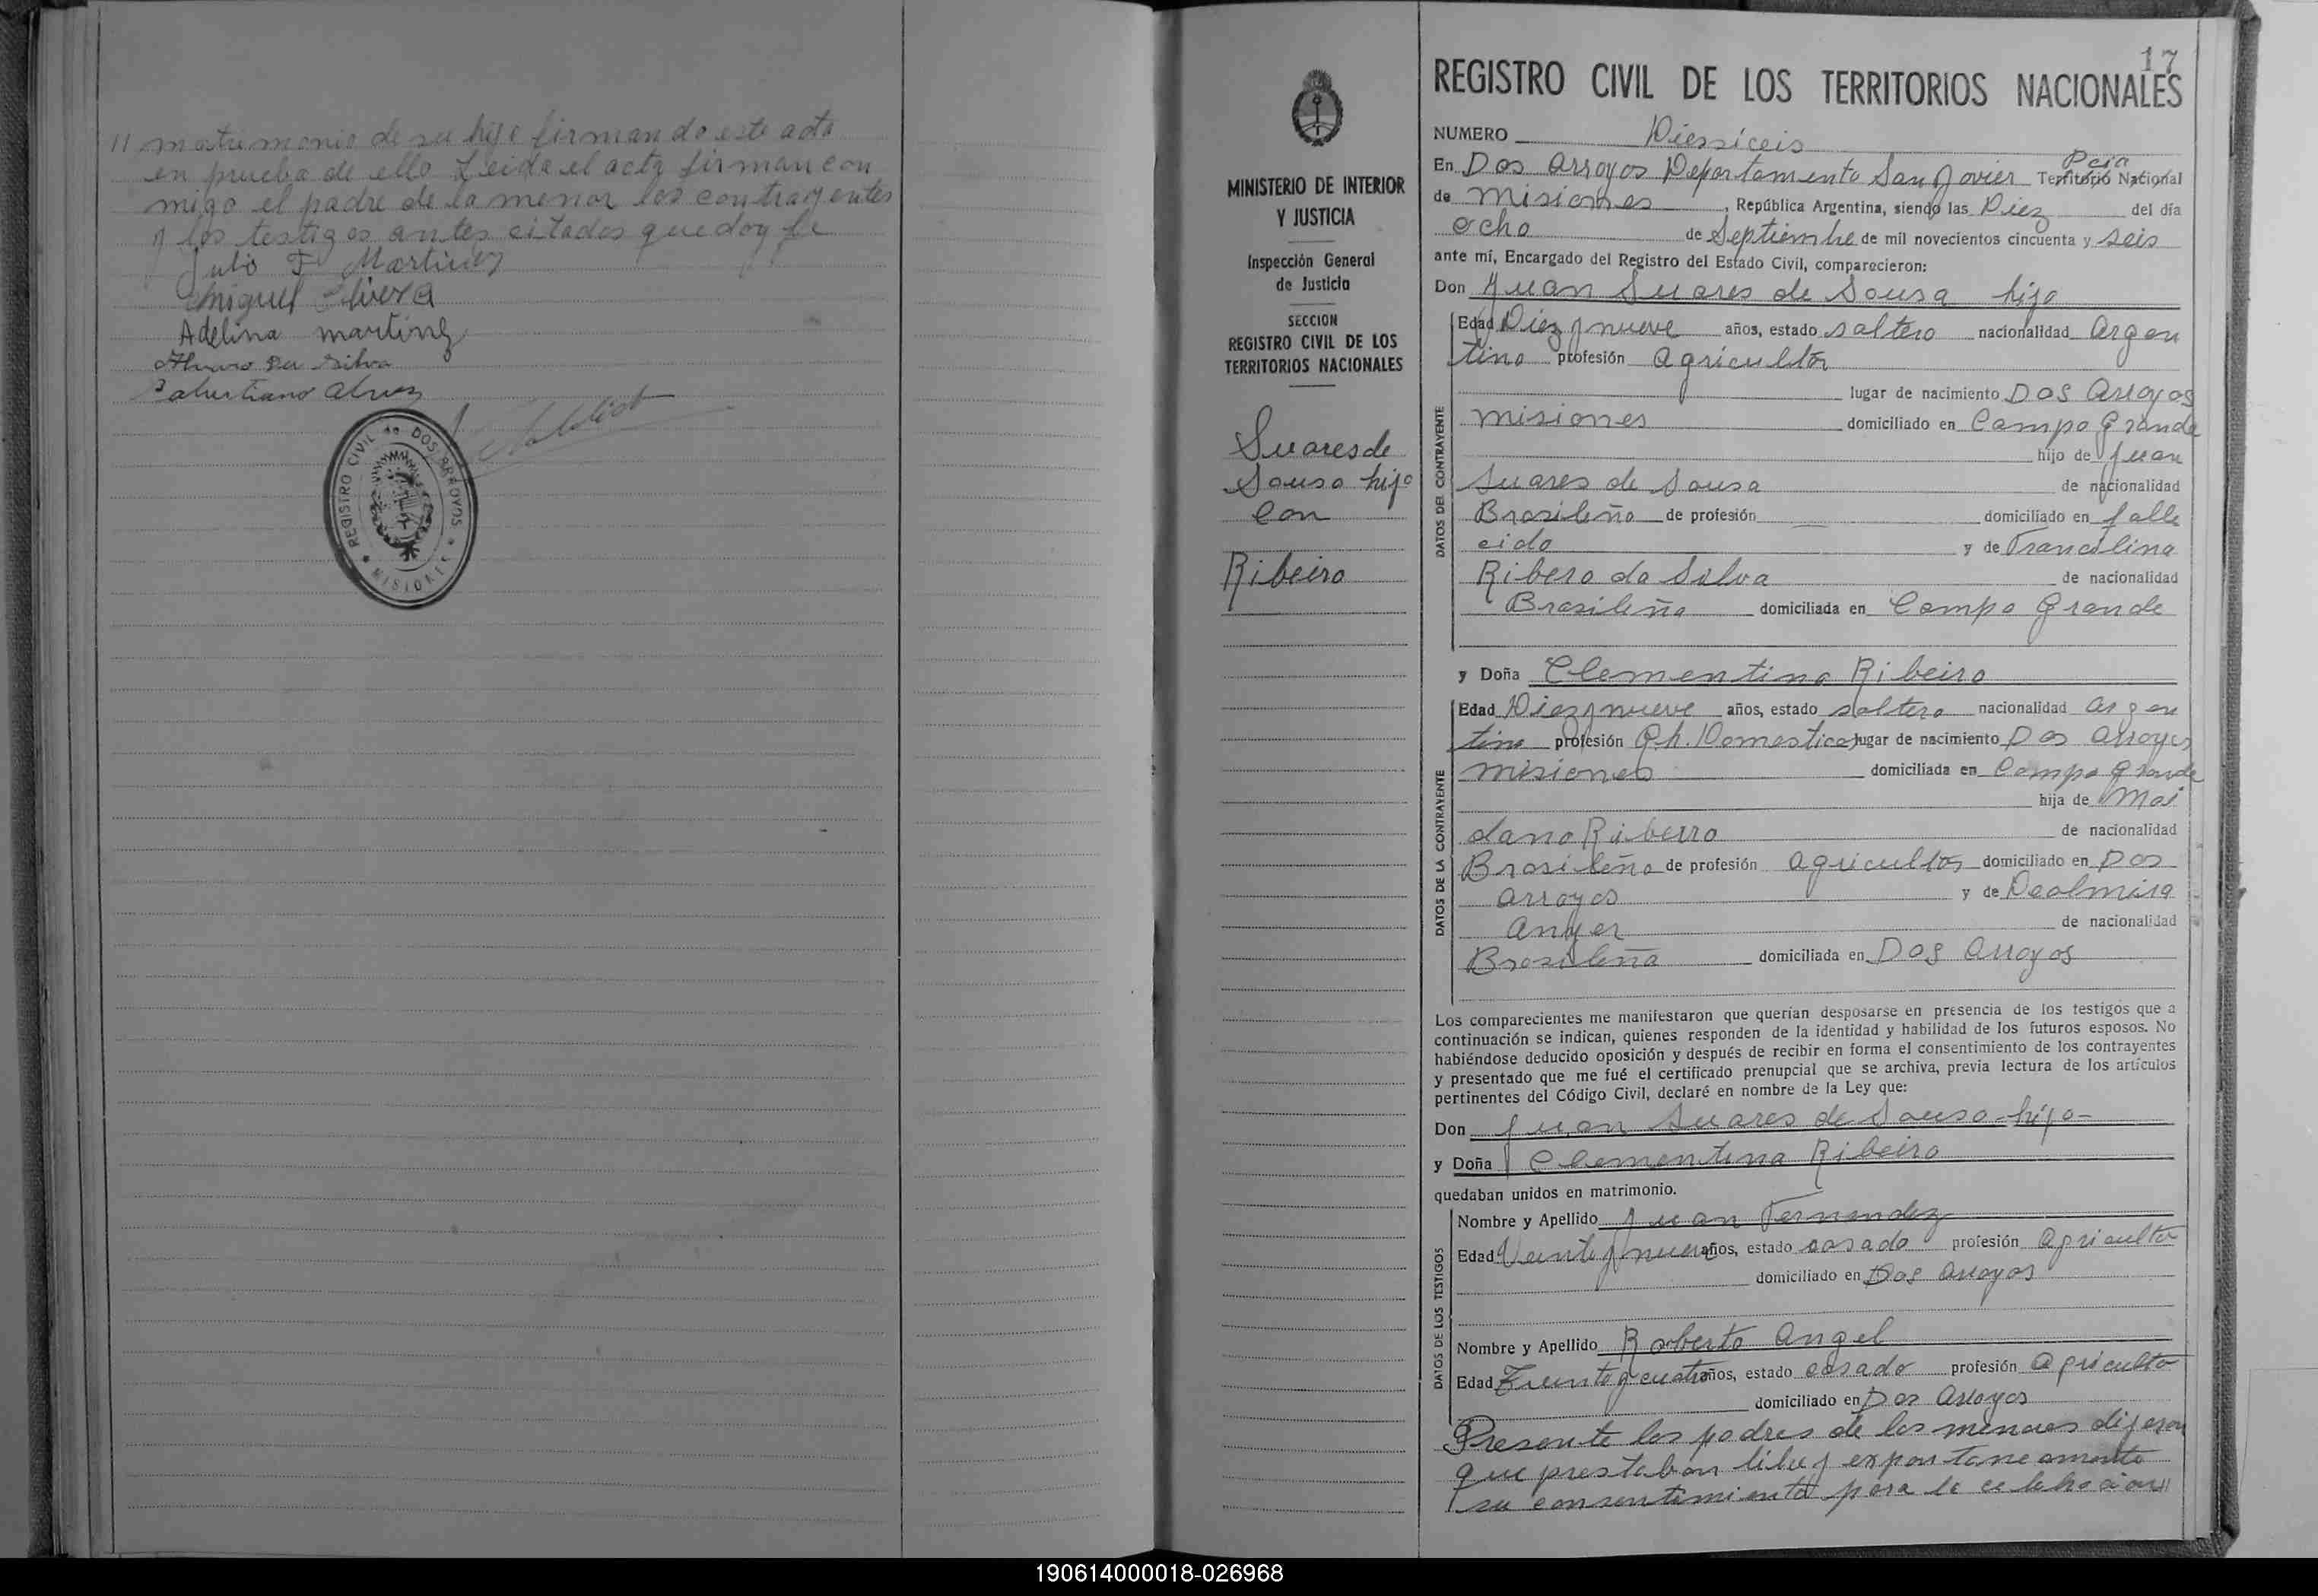 // matrimonio de su hija firmando este acta
en prueba de ello Leida el acta firman con
migo el padre de la menor los contrayentes
y los testigos antes citados que doy fe
Julio F Martinez
Miguel Olivera
Adelina martinez
Alvaro Da Silva
Salustiano Alvez
REGISTRO CIVIL de DOS ARROYOS
MISIONES
17
MINISTERIO DE INTERIOR
Y JUSTICIA
Inspección General
de Justicia
SECCION
REGISTRO CIVIL DE LOS
TERRITORIOS NACIONALES
Suares de
Sousa hijo
Con
Ribeiro
REGISTRO CIVIL DE LOS TERRITORIOS NACIONALES
NUMERO Diessiceis
En Dos Arroyos Departamento San Javier Pcia Territorio Nacional
de Misiones, República Argentina, siendo las Diez del día
ocho de Septiembre de mil novecientos cincuenta y seis
ante mí, Encargado del Registro del Estado Civil, comparecieron:
Don Juan Suares de Sousa hijo
DATOS DEL CONTRAYENTE
Edad Diez y nueve años, estado soltero nacionalidad Argen
tino profesión Agricultor
lugar de nacimiento Dos Arroyos
Misiones domiciliado en Campo Grande
hijo de Juan
Suares de Sousa de nacionalidad
Brasileño de profesión domiciliado en falle
cido y de Francelina
Ribero da Silva de nacionalidad
Brasileña domiciliada en Campo Grande
y Doña Clementina Ribeiro
DATOS DE LA CONTRAYENTE
Edad Diez y nueve años, estado soltera nacionalidad Argen
tina profesión Qh. Domesticos lugar de nacimiento Dos Arroyos
Misiones domiciliada en Campo Grande
hija de Mai
dano Ribeiro de nacionalidad
Brasileño de profesión Agricultor domiciliado en Dos
Arroyos y de Dealmira
de nacionalidad
Brasileña domiciliada en Dos Arroyos
Los comparecientes me manifestaron que querían desposarse en presencia de los testigos que a
continuación se indican, quienes responden de la identidad y habilidad de los futuros esposos. No
habiéndose deducido oposición y después de recibir en forma el consentimiento de los contrayentes
y presentado que me fué el certificado prenupcial que se archiva, previa lectura de los artículos
pertinentes del Código Civil, declaré en nombre de la Ley que:
Don Juan Suares de Sousa hijo
y Doña Clementina Ribeiro
quedaban unidos en matrimonio.
DATOS DE LOS TESTIGOS
Nombre y Apellido Juan Fernandez
Edad Veinte y nueve años, estado casado profesión Agriculto
domiciliado en Dos Arroyos
Nombre y Apellido Roberto Angel
Edad Treinta y cuatro años, estado casado profesión Agriculto
domiciliado en Dos Arroyos
Presente los padres de los menores dijeron
que prestaban libre y expontaneamente
su consentimiento para la celebracion //
190614000018-026968